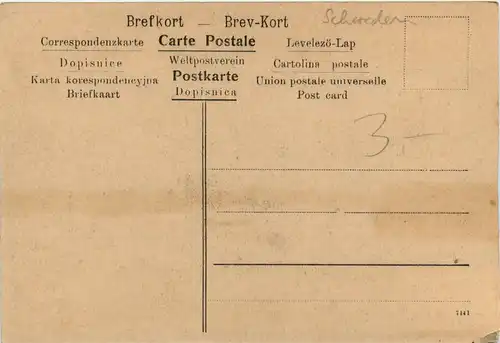 Brefkort — Brev-Kort
Schweden
Correspondenzkarte Carte Postale Levelező-Lap
Dopisnice Weltpostverein Cartolina postale
Karta korespondencyjna Postkarte Union postale universelle
Briefkaart Dopisnica Post card
3,-
7141